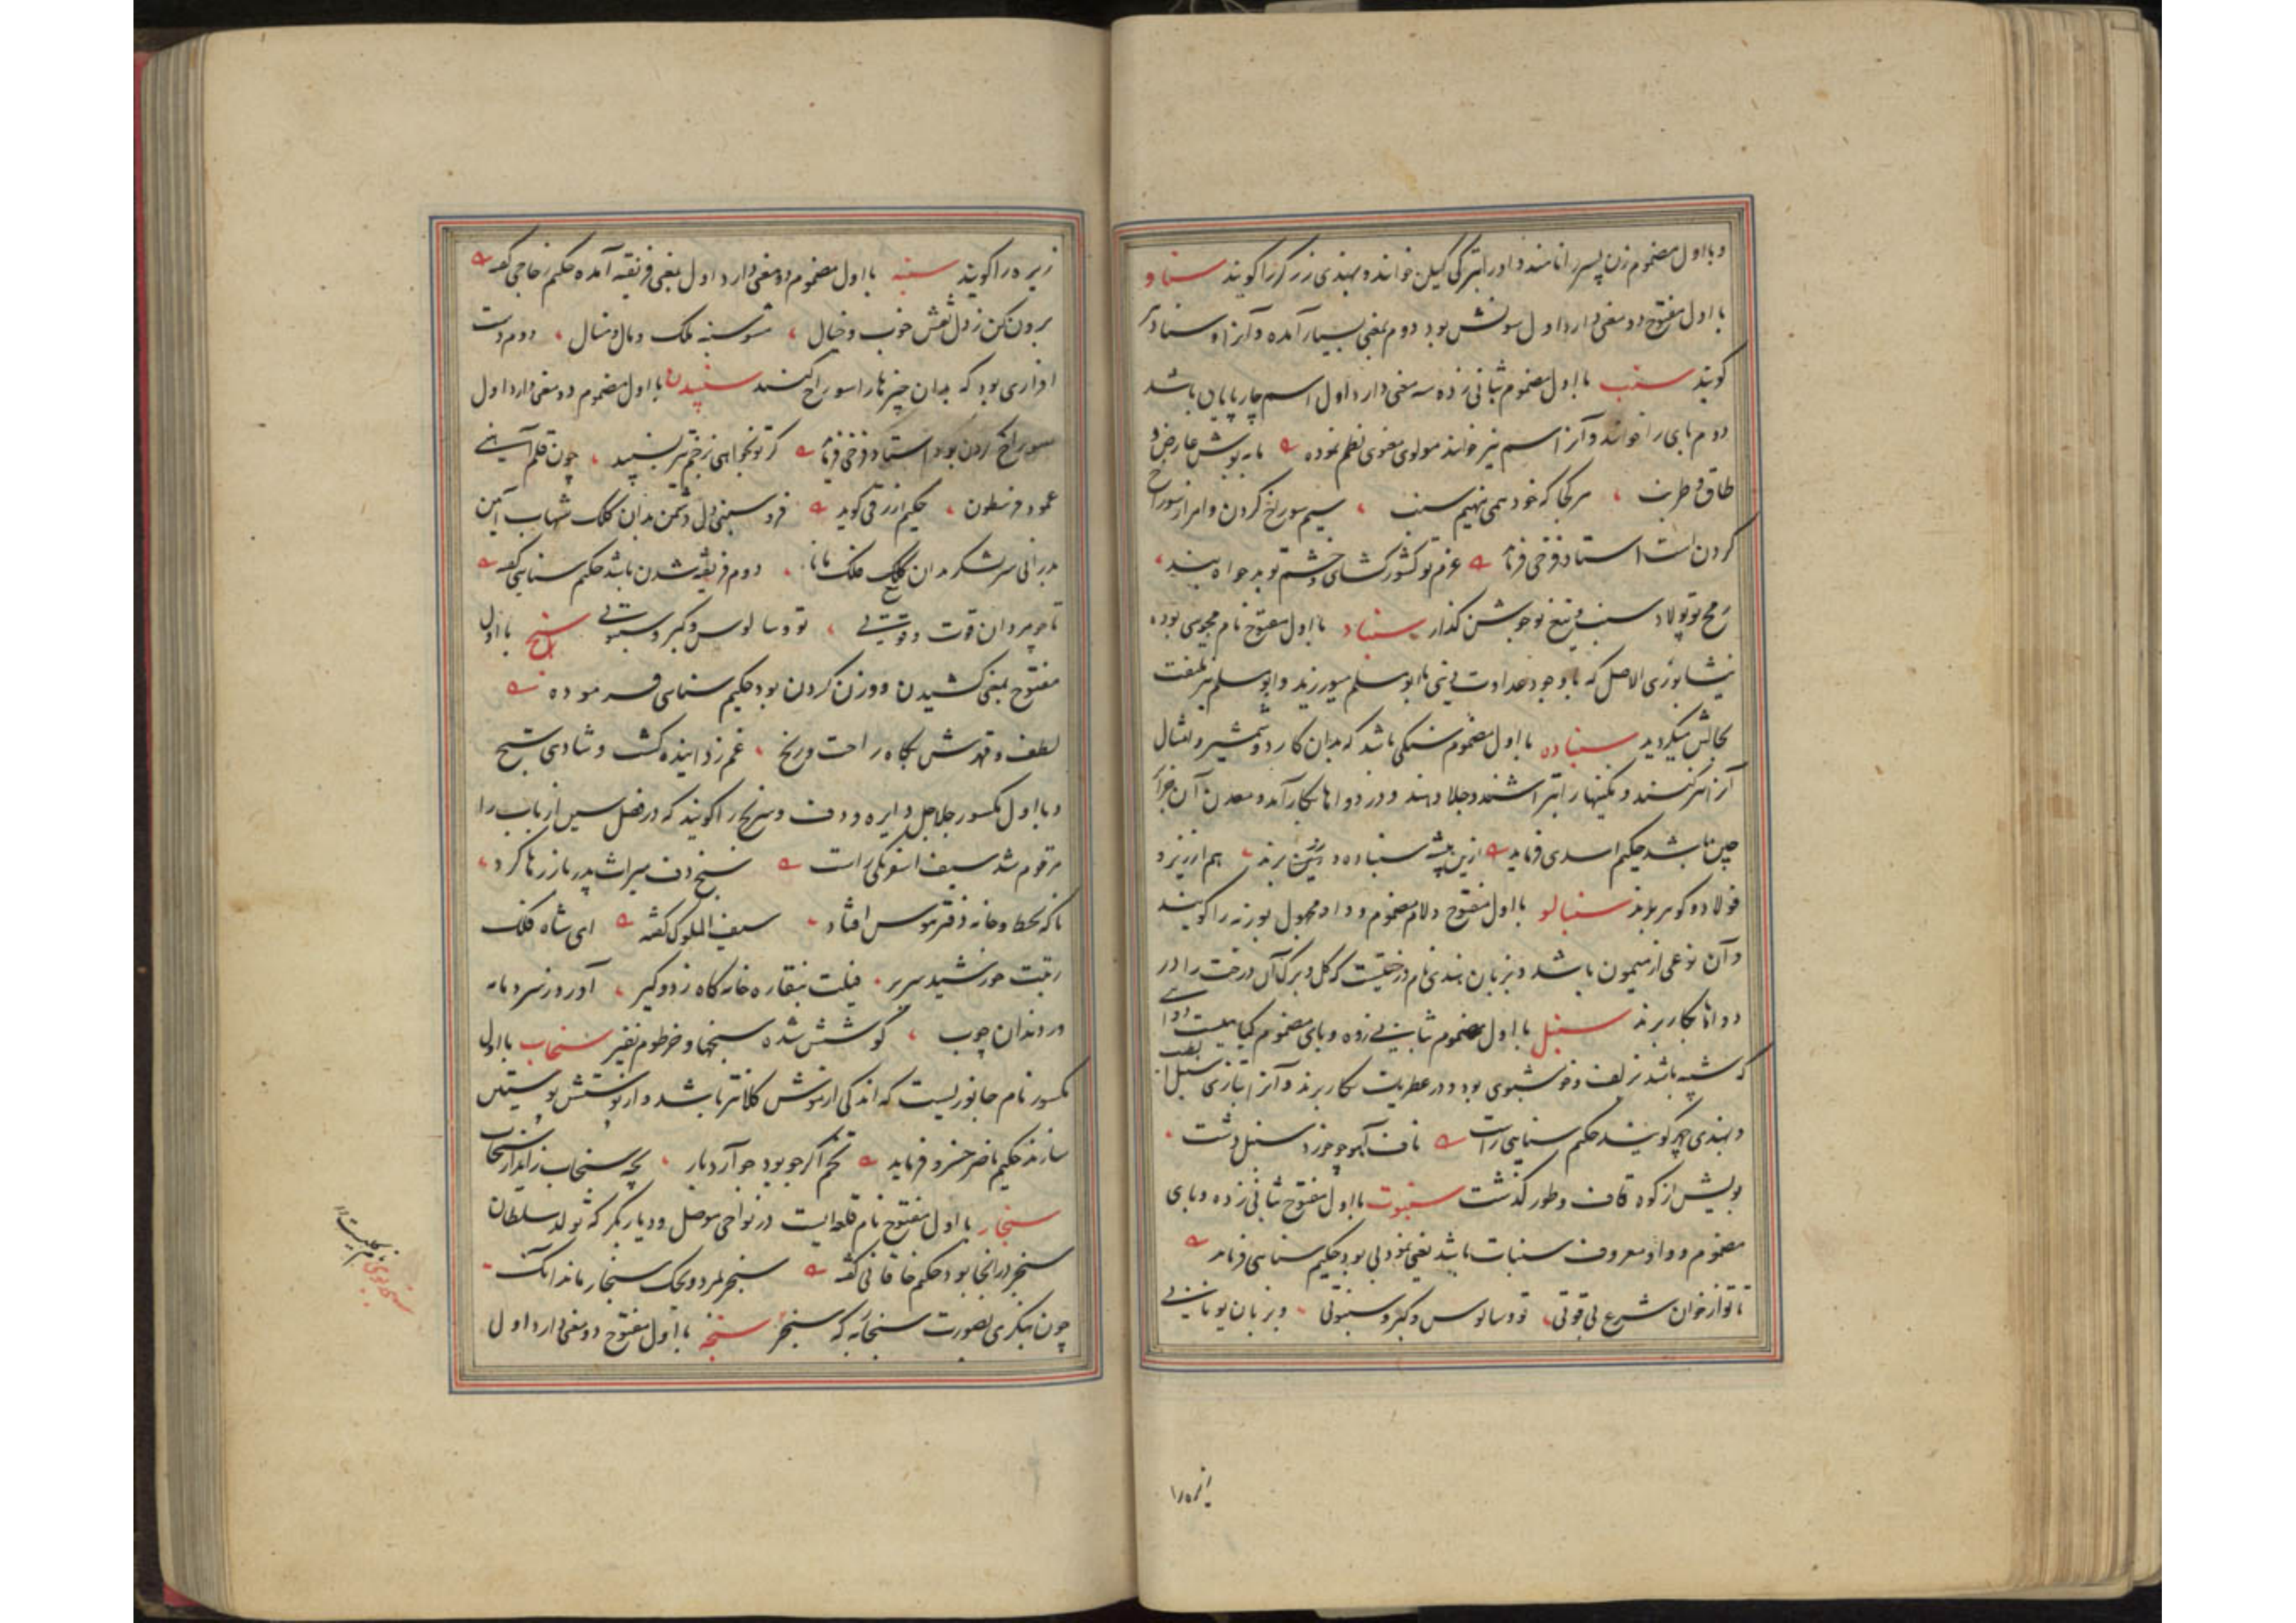 و با اول مضموم زن پسر را نامند و او را بترکی کیلن خوانند و بهندی زرگر را کویند سناو
با اول مفتوح دو معنی دارد اول سونش بود دوم بمعنی بسیار آمده و آنرا
کویند سنب با اول مضموم بثانی زده سه معنی دارد اول اسم چارپایان باشد
دوم پای را خوانند و آنرا سم نیز خوانند مولوی معنوی نظم نموده عارض و
طاق و طرنب هر کجا که خود همی نهیم سنب سیم سوراخ کردن و امر از سوراخ
کردن است استاد فرخی فرماید عزم تو کشور کشای و خشم تو بدخواه
رمح تو پولاد سنب و تیغ تو جوشن کذار سنباد با اول مفتوح نام مجوسی بوده
نیشابوری الاصل که با وجود عداوت دینی با ابو مسلم میورزید و ابو مسلم نیز
بحالش میکردید سنباده با اول مضموم سنکی باشد که بدان کارد و شمشیر و امثال
آنرا تیز کنند و نکینها را بتراشند و جلا دهند و در دواها بکار آید و معدن آن جزایر
چین باشد حکیم اسدی فرماید ازین پیشه سنباده و برند هم ارزیز و
فولاد و کوهر برند سنبالو با اول مفتوح و لام مضموم و واو مجهول بوزنه را کویند
و آن نوعی از میمون باشد و بزبان هندی نام درختیست که کل و برک آن درخت را در
دواها بکار برند سنبل با اول مضموم بثانی زده و بای مضموم کیاهیست دوایی
که شبیه باشد بزلف و خوشبوی بود و در عطریات بکار برند و آنرا بتازی سنبل الطیب
و بهندی چهر کویند حکیم سنایی راست ناف آهو چو خورد سنبل دشت
بویش از کوه قاف و طور کذشت سنبوت با اول مفتوح بثانی زده و بای
مضموم و واو معروف سنبات باشد یعنی نمودنی بود حکیم سنایی فرماید
تا تو از خوان شرع بی قوتی تو و سالوس و کبر و سنبوتی و بزبان یونانی
زیره را
زیره را کویند سنبه با اول مضموم دو معنی دارد اول بمعنی فریفته آمده حکیم زجاجی کفته
برون کن ز دل نقش خوب و خیال مشو سنبه ملک و مال و منال دوم دست
افزاری بود که بدان چیزها را سوراخ کنند سنبیدن با اول مضموم دو معنی دارد اول
سوراخ کردن بود استاد فرخی فرماید کر تو بخواهی بزخم تیر بسنبید چون قلم آسنی
عمود فرسطون حکیم ازرقی کوید فرو سنبی دل دشمن بدان کلک شهاب آیین
بدرانی سر لشکر بدان کلک دوم فریفته شدن باشد حکیم سنایی کفته
تا چو مردان قوت و قوتی تو و سالوس و کبر و سنبوتی سنج با اول
مفتوح بمعنی کشیدن و وزن کردن بود حکیم سنایی فرموده
لطف و قهرش بکاه راحت و رنج غم زداینده کشت و شادی سنج
و با اول مکسور جلاجل دایره و دف و سرنج را کویند که در فصل سین از باب را
مرقوم شد سیف اسفرنکی راست سنج دف میراث پدر باز رها کرد
تا که بخط و خانه دفتر موس افتاد سیف الملوک کفته ای شاه فلک
رتبت خورشید سریر فیلت بنقاره خانه کاه زدوکیر آورد ز سر دمامه
و ز دندان چوب کوشش شده سنجها و خرطوم نفیر سنجاب با اول
مکسور نام جانوریست که اندکی از موش کلانتر باشد و از پوستش پوستین
سازند حکیم ناصر خسرو فرماید تخم اکر جو بود جو آرد بار بچه سنجاب زاید از سنجاب
سنجار با اول مفتوح نام قلعه ایست در نواحی موصل و دیار بکر که تولد سلطان
سنجر در آنجا بود حکیم خاقانی کفته سنجر بمرد و ملک سنجار ماند آنک
چون بنکری بصورت سنجار به که سنجر سنجه با اول مفتوح دو معنی دارد اول